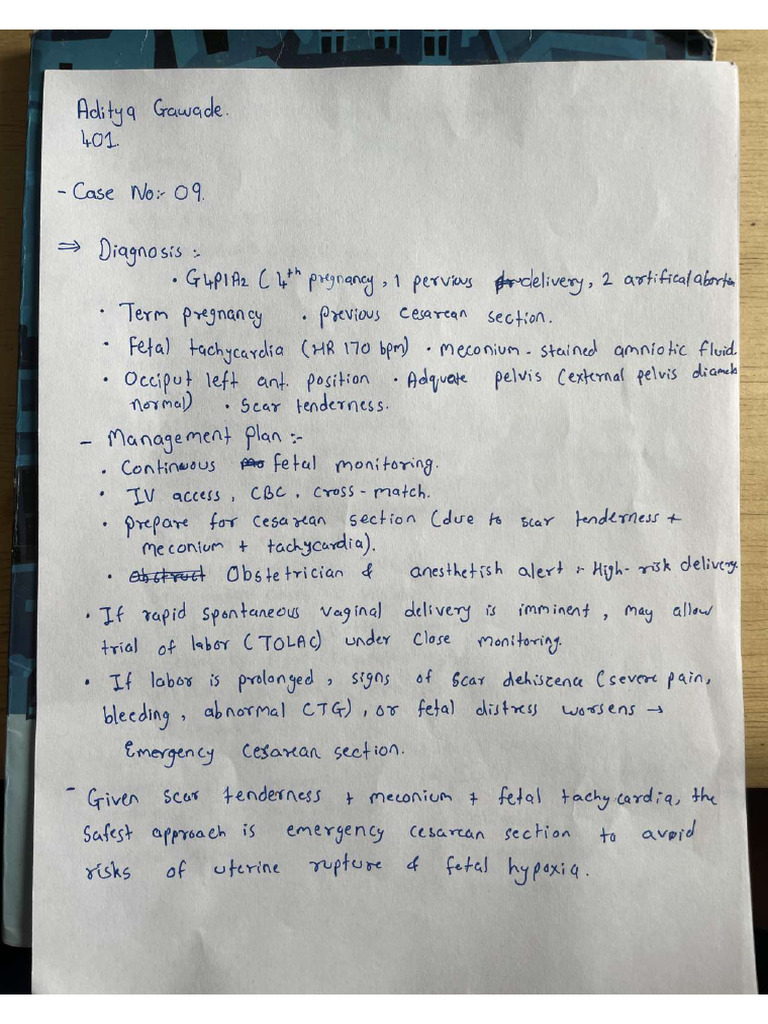 Aditya Gawade.
401.
- Case No:- 09.
⇒ Diagnosis :-
• G4P1A2 ( 4th pregnancy, 1 pervious delivery, 2 artifical abortn
• Term pregnancy • previous cesarean section.
• Fetal tachycardia (HR 170 bpm) • meconium - stained amniotic fluid.
• Occiput left ant. position • Adquate pelvis (external pelvis diamets
normal) • scar tenderness.
- Management Plan :-
• Continuous fetal monitoring.
• IV access, CBC, cross-match.
• prepare for cesarean section (due to scar tenderness +
meconium + tachycardia).
• Obstruct Obstetrician & anesthetish alert :- High-risk delivery.
• If rapid spontaneous vaginal delivery is imminent, may allow
trial of labor (TOLAC) under close monitoring.
• If labor is prolonged, signs of scar dehiscence (severe pain,
bleeding, abnormal CTG), or fetal distress worsens →
Emergency cesarean section.
- Given scar tenderness + meconium + fetal tachycardia, the
safest approach is emergency cesarean section to avoid
risks of uterine rupture & fetal hypoxia.